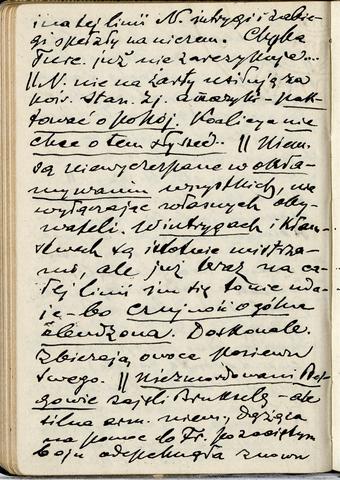 i na tej linii N. intrygi i zabie-
gi spełzły na niczem. Chyba
Turc. już nie zaryzykuje...
|| N. nie na żarty usiłują za
pośr. Stan. Zj. ameryki - pak-
tować o pokój. Koalicya nie
chce o tem słyszeć. || Niem.
są niewyczerpane w okła-
mywaniu wszystkich, nie
wyłączając własnych oby-
wateli. W intrygach i kłam-
stwach są istotnie mistrza-
mi, ale już teraz na ca-
łej linii im się to nie uda-
je - bo czujność ogólna
zbudzona. Doskonale.
Zbierają owoce posiewu
swego. || Niezmordowani Bel-
gowie zajęli Brukselę - ale
silna arm. niem., dążąca
na pomoc do Fr. po zaciętym
boju odepchnęła znowu